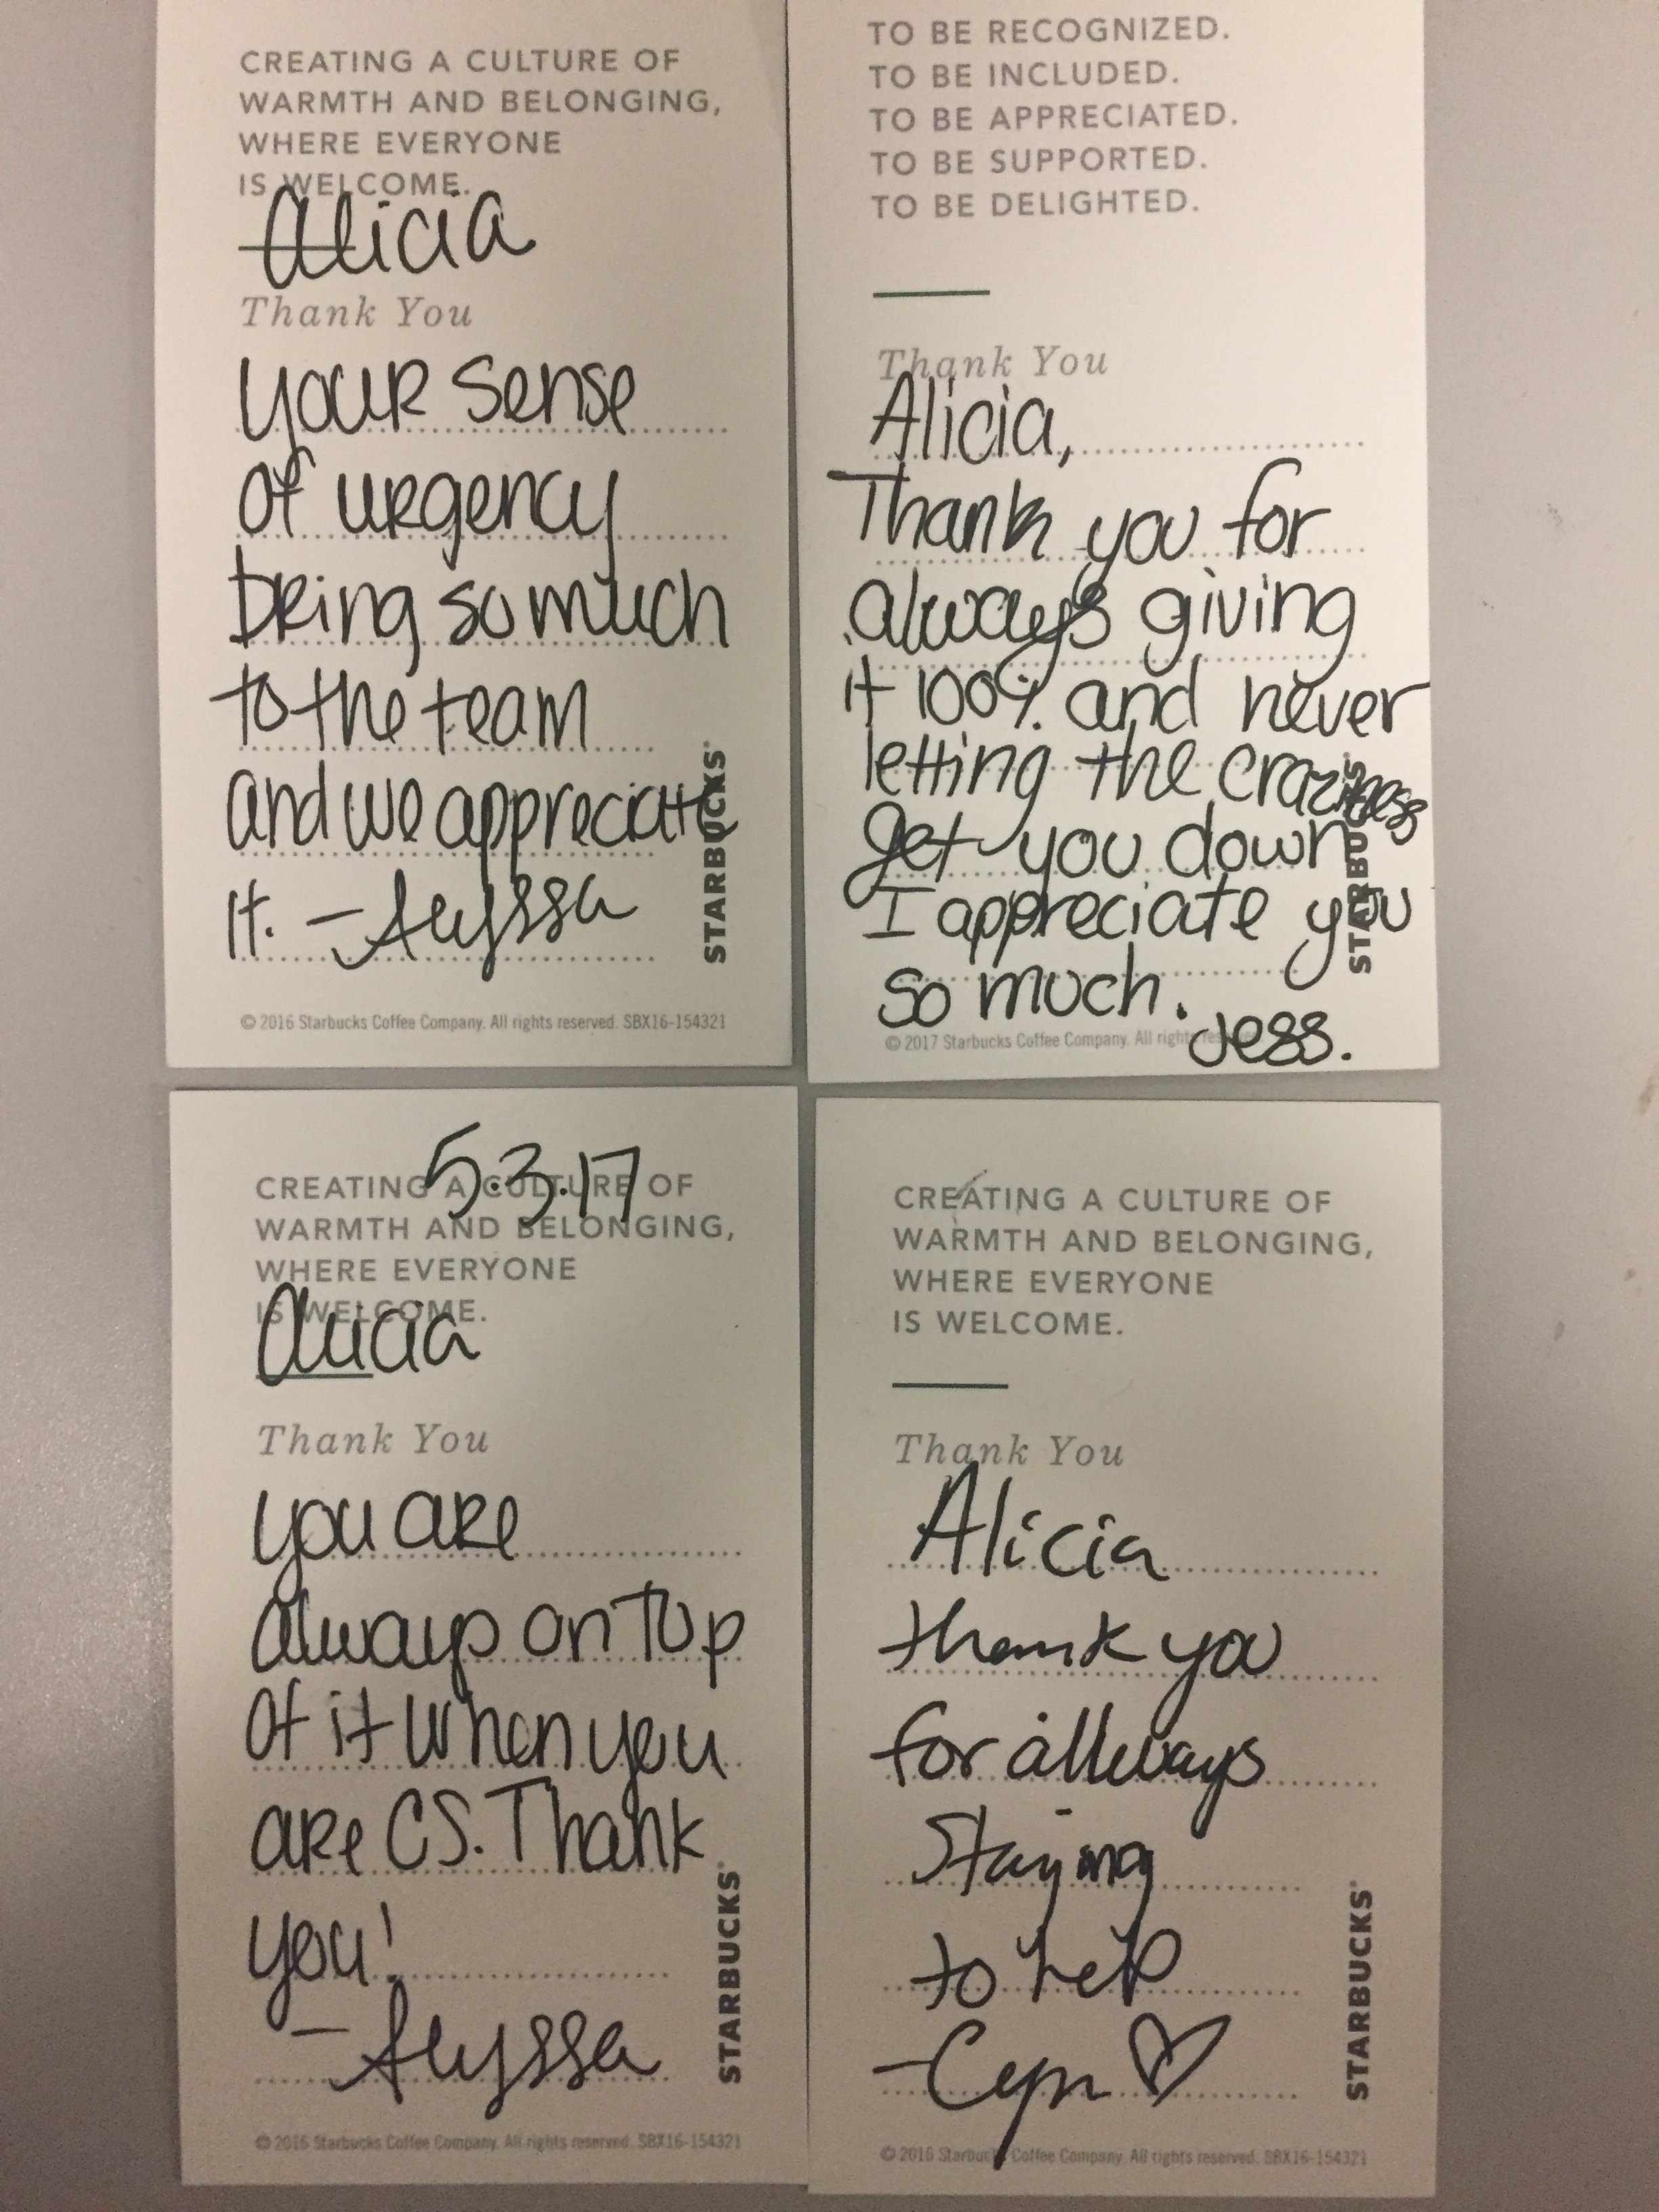 CREATING A CULTURE OF
WARMTH AND BELONGING,
WHERE EVERYONE
IS WELCOME.
Alicia
Thank You
your sense
of urgency
bring so much
to the team
and we appreciate
it. -Alyssa
STARBUCKS
© 2016 Starbucks Coffee Company. All rights reserved. SBX16-154321
TO BE RECOGNIZED.
TO BE INCLUDED.
TO BE APPRECIATED.
TO BE SUPPORTED.
TO BE DELIGHTED.
Thank You
Alicia,
Thank you for
always giving
it 100% and never
letting the craziness
get you down
I appreciate you
so much.
Jess.
STARBUCKS
© 2017 Starbucks Coffee Company. All rights
5.3.17
CREATING A CULTURE OF
WARMTH AND BELONGING,
WHERE EVERYONE
IS WELCOME.
Alicia
Thank You
you are
always on top
of it when you
are CS. Thank
you!
-Alyssa
STARBUCKS
© 2016 Starbucks Coffee Company. All rights reserved. SBX16-154321
CREATING A CULTURE OF
WARMTH AND BELONGING,
WHERE EVERYONE
IS WELCOME.
Thank You
Alicia
thank you
for allways
staying
to help
-Cyn ♡
STARBUCKS
© 2016 Starbucks Coffee Company. All rights reserved. SBX16-154321